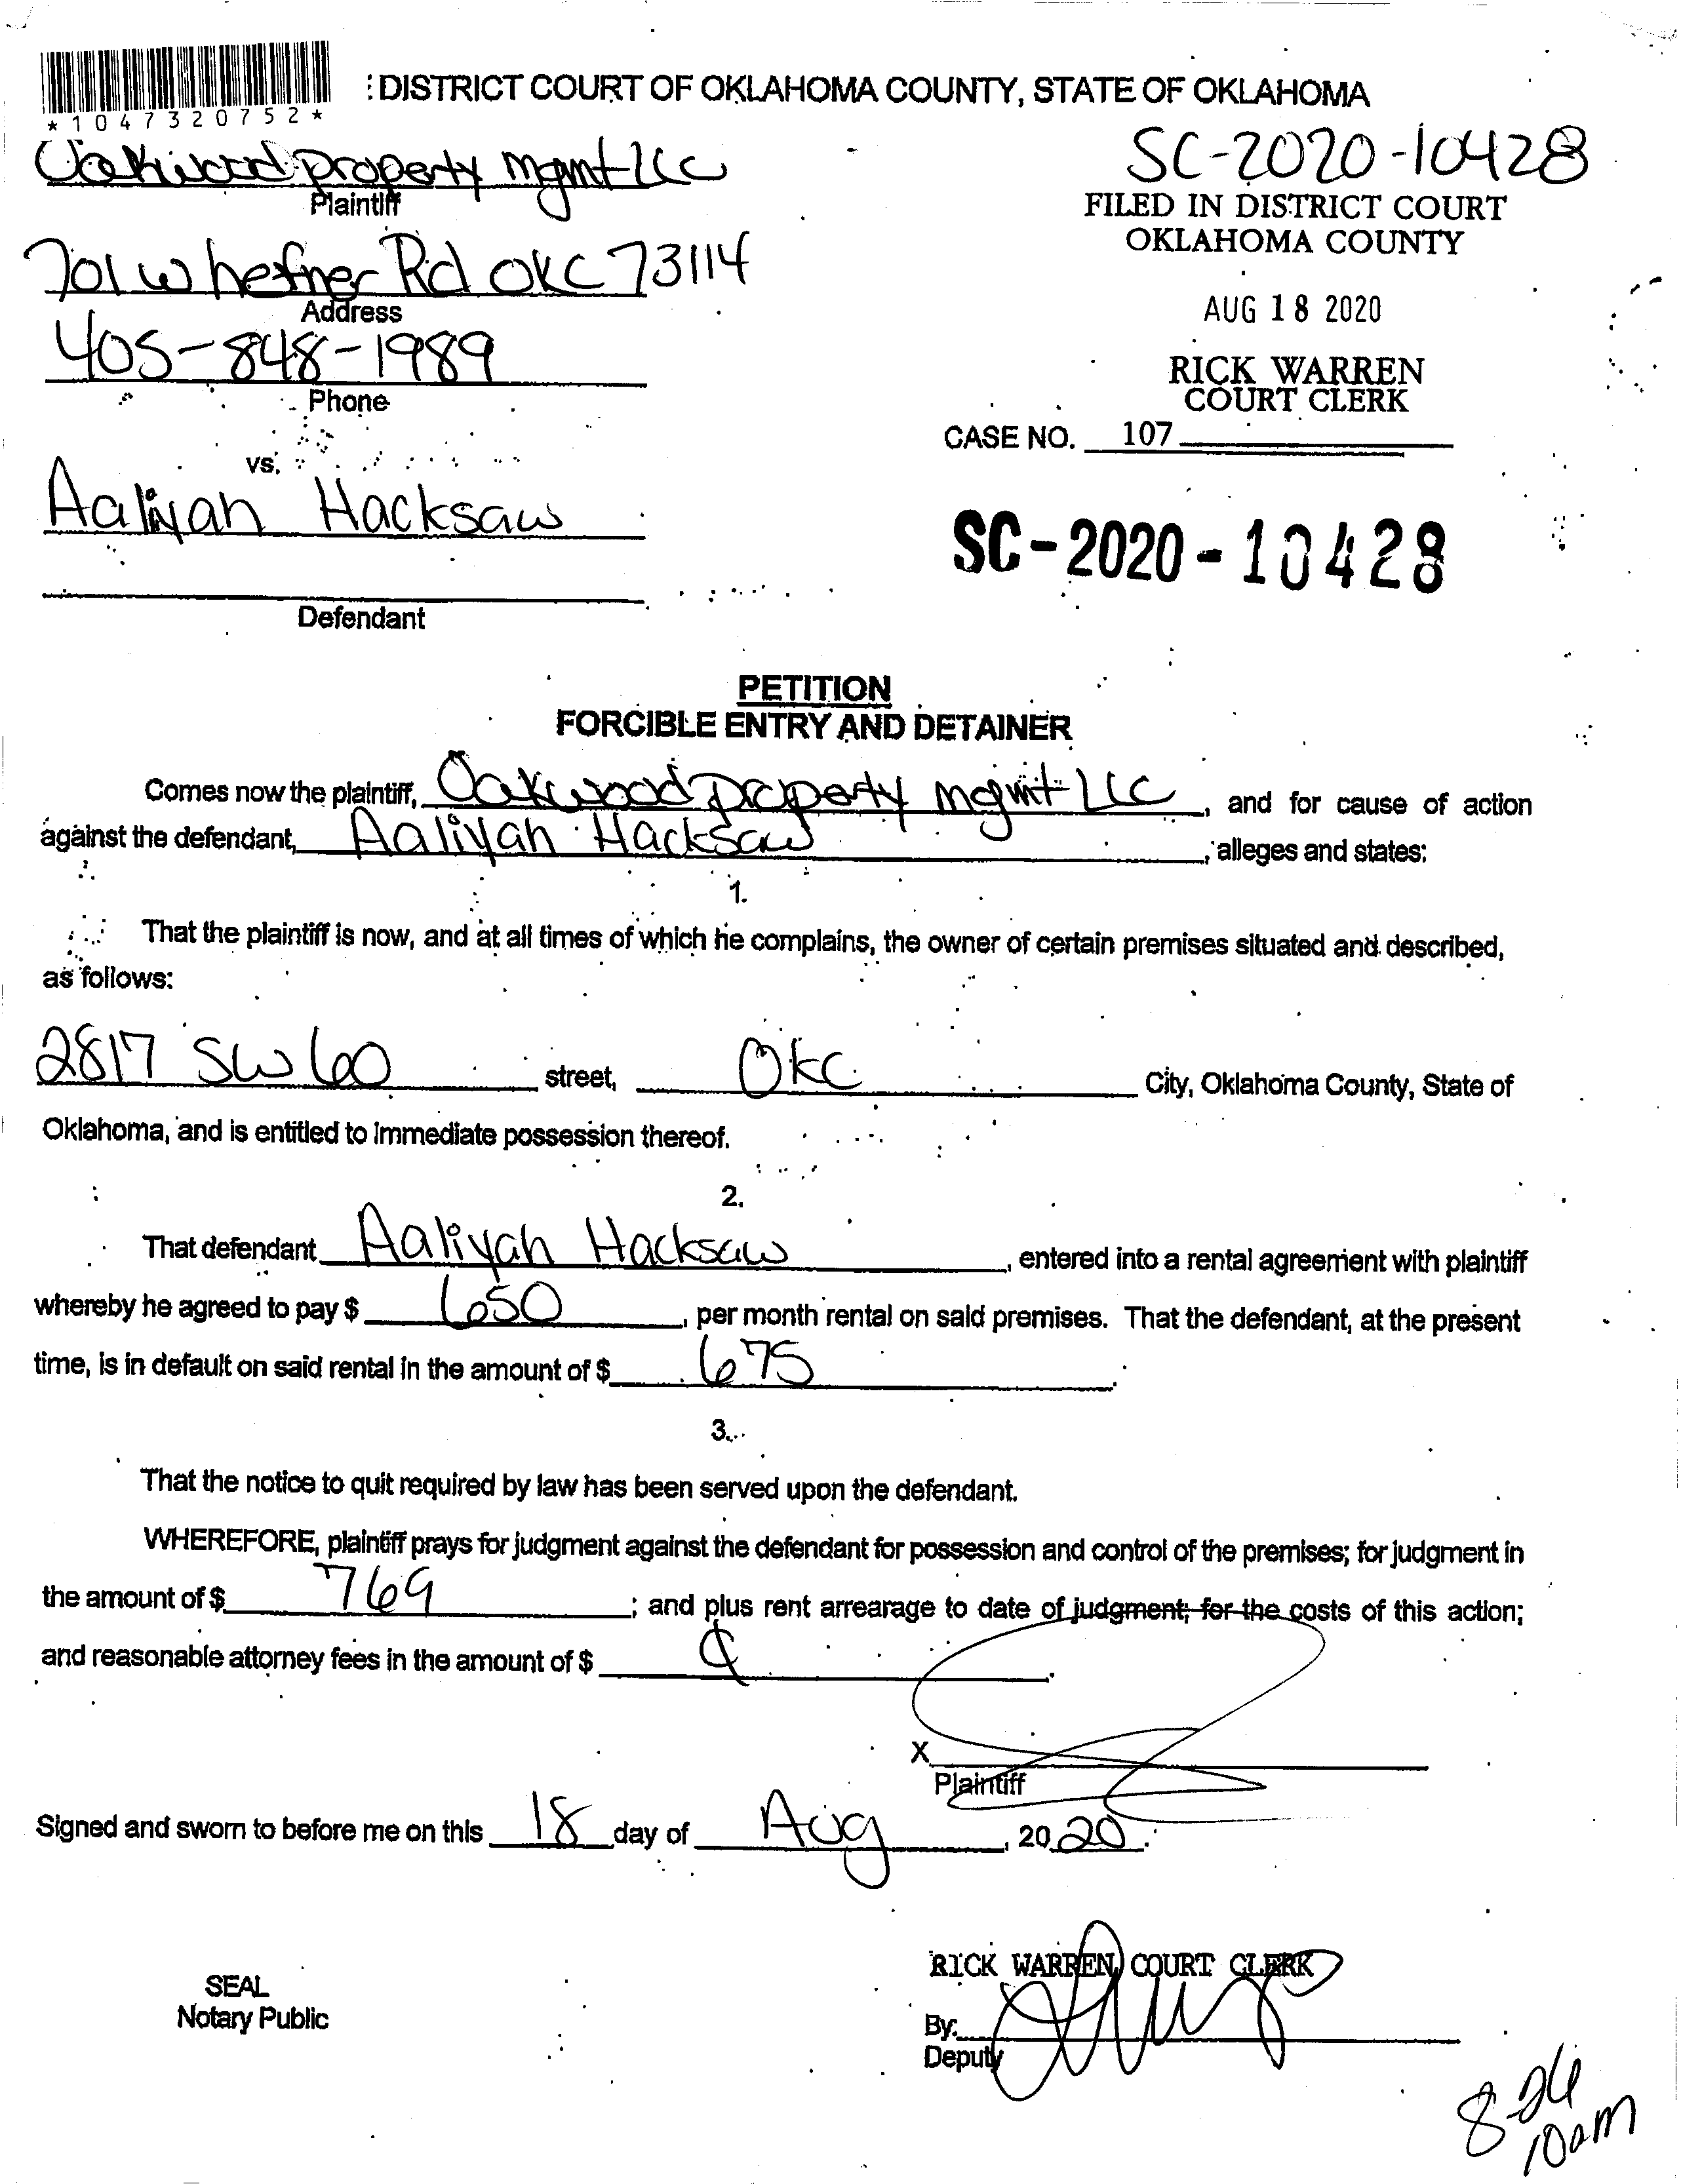 : DISTRICT COURT OF OKLAHOMA COUNTY, STATE OF OKLAHOMA
* 1 0 4 7 3 2 0 7 5 2 *
Oakwood property mgmt LLC
Plaintiff
SC-2020-10428
FILED IN DISTRICT COURT
OKLAHOMA COUNTY
701 W hefner Rd OKC 73114
Address
AUG 18 2020
405-848-1989
Phone
RICK WARREN
COURT CLERK
CASE NO. 107
vs.
Aaliyah Hacksaw
SC-2020-10428
Defendant
PETITION
FORCIBLE ENTRY AND DETAINER
Comes now the plaintiff, Oakwood property mgmt LLC, and for cause of action
against the defendant, Aaliyah Hacksaw, alleges and states:
1.
That the plaintiff is now, and at all times of which he complains, the owner of certain premises situated and described,
as follows:
2817 SW 60 street, OKC City, Oklahoma County, State of
Oklahoma, and is entitled to immediate possession thereof.
2.
That defendant Aaliyah Hacksaw, entered into a rental agreement with plaintiff
whereby he agreed to pay $ 650, per month rental on said premises. That the defendant, at the present
time, is in default on said rental in the amount of $ 675.
3.
That the notice to quit required by law has been served upon the defendant.
WHEREFORE, plaintiff prays for judgment against the defendant for possession and control of the premises; for judgment in
the amount of $ 769; and plus rent arrearage to date of judgment; for the costs of this action;
and reasonable attorney fees in the amount of $
X
Plaintiff
Signed and sworn to before me on this 18 day of Aug, 2020.
RICK WARREN, COURT CLERK
SEAL
Notary Public
By:
Deputy
8-26
10am